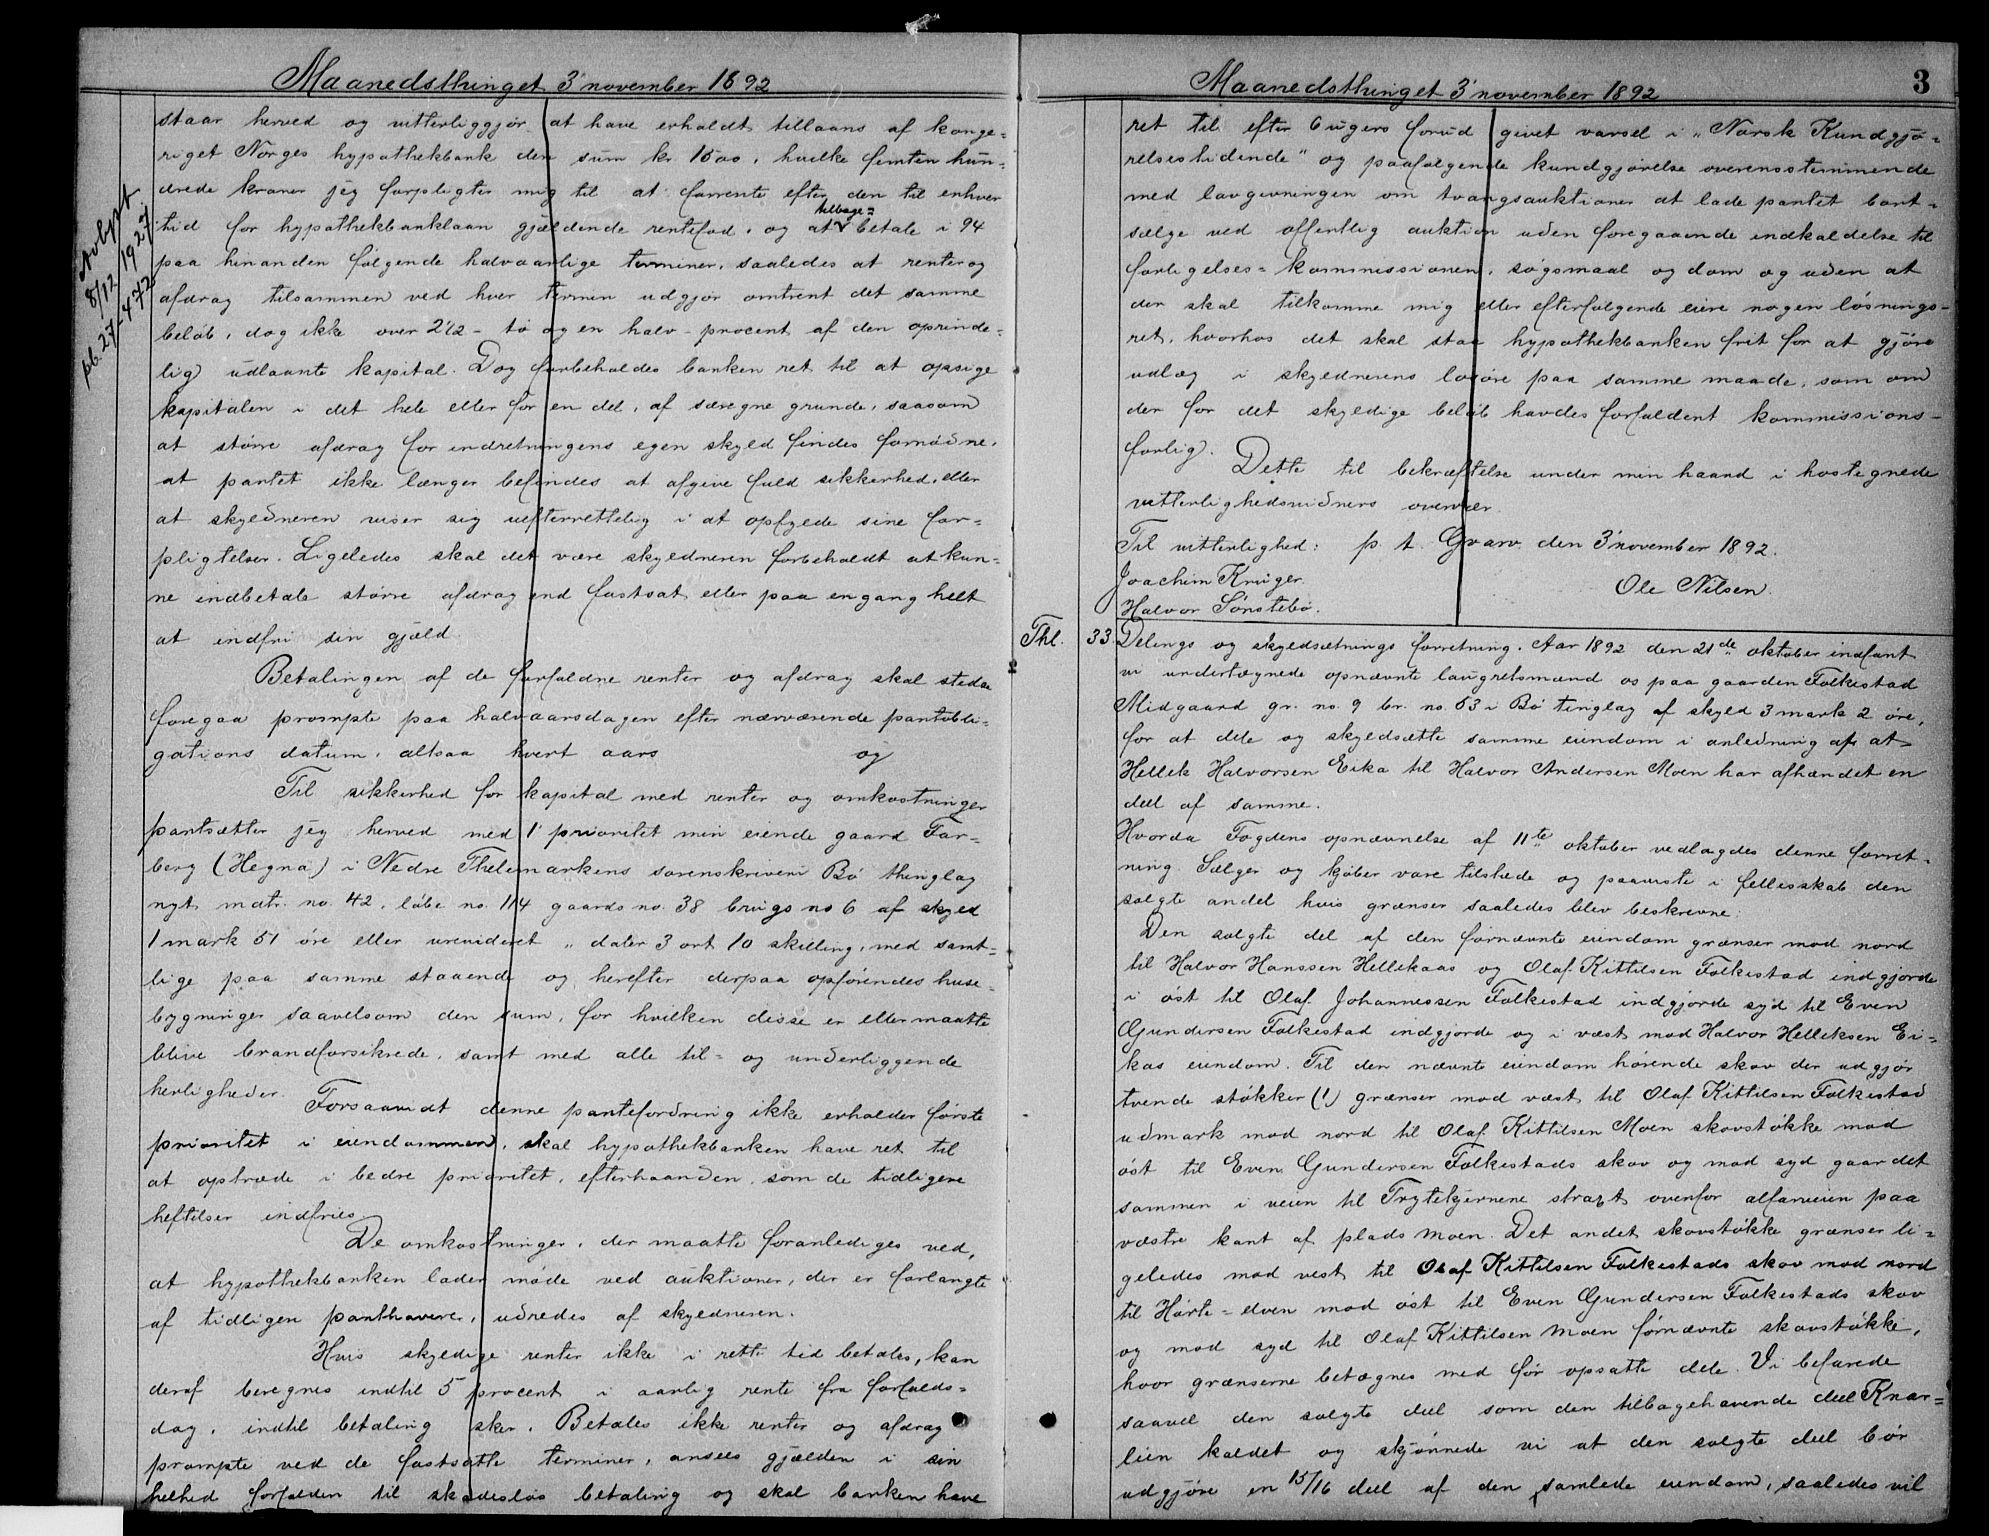 Maanedsthinget 3' november 1892
staar herved og vitterliggjør at have erholdt tillaans af konge=
riget Norges hypothekbank den sum kr. 1500, hvilke femten hun=
drede kroner jeg forpligter mig til at forrente efter den til enhver
tid for hypothekbanklaan gjældende rentefod, og at tilbage= betale i 94
paa hinanden følgende halvaarlige terminer, saaledes at renter og
afdrag tilsammen ved hver termin udgjør omtrent det samme
beløb, dog ikke over 2 1/2 - to og en halv - procent af den oprinde=
lig udlaante kapital. Dog forbeholdes banken ret til at opsige
kapitalen i det hele eller for en del, af særegne grunde, saasom
at større afdrag for indretningens egen skyld findes fornødne,
at pantet ikke længer befindes at afgive fuld sikkerhed, eller
at skyldneren viser sig uefterrettelig i at opfylde sine for=
pligtelser. Ligeledes skal det være skyldneren forbeholdt at kun=
ne indbetale større afdrag end fastsat eller paa engang helt
at indfri sin gjæld.
Betalingen af de forfaldne renter og afdrag skal stedse
foregaa prompte paa halvaarsdagen efter nærværende pantobli=
gations datum, altsaa hvert aars og
Til sikkerhed for kapital med renter og omkostninger
pantsætter jeg herved med 1' prioritet min eiende gaard Far=
berg (Hegna) i Nedre Thelemarkens sorenskriveri Bø thinglag
nyt matr. no. 42, løbe no. 114 gaards no. 38 brugs no 6 af skyld
1 mark 51 øre eller urevideret " daler 3 ort 10 skilling, med samt=
lige paa samme staaende og herefter derpaa opførendes huse=
bygninger saavelsom den sum, for hvilken disse er eller maatte
blive brandforsikrede, samt med alle til= og underliggende
herligheder.
Forsaavidt denne pantefordring ikke erholder første
prioritet i eiendommen, skal hypothekbanken have ret til
at optræde i bedre prioritet, efterhaanden som de tidligere
heftelser indfries.
De omkostninger, der maatte foranlediges ved,
at hypothekbanken lader møde ved auktioner, der er forlangte
af tidligere panthavere, udredes af skyldneren.
Hvis skyldige renter ikke i rette tid betales, kan
deraf beregnes indtil 5 procent i aarlig rente fra forfalds=
dag, indtil betaling sker. Betales ikke renter og afdrag
prompte ved de fastsatte terminer, ansees gjælden i sin
helhed forfalden til skadesløs betaling og skal banken have
Avlyst
8/12 1927
pb. 27-472
Maanedsthinget 3' november 1892
3
ret til efter 6 ugers forud givet varsel i "Norsk Kundgjø=
relsestidende" og paafølgende kundgjørelse overensstemmende
med lovgivningen om tvangsauktioner at lade pantet bort=
sælge ved offentlig auktion uden foregaaende indkaldelse til
forligelses=kommissionen, søgsmaal og dom og uden at
der skal tilkomme mig eller efterfølgende eiere nogen løsnings=
ret, hvorhos det skal staa hypothekbanken frit for at gjøre
udlæg i skyldnerens løsøre paa samme maade, som om
der for det skyldige beløb havdes forfaldent kommissions=
forlig.
Dette til bekræftelse under min haand i hostegnede
vitterlighedsvidners overvær.
Til vitterlighed: p. t. Gvarv den 3' november 1892.
Joachim Krüger. Ole Nilsen.
Halvor Sønstebø.
Thl. 33 Delings og skyldsætnings forretning. Aar 1892 den 21de oktober indfant
vi undertegnede opnævnte laugretsmænd os paa gaarden Folkestad
Midgaard gr. no. 9 br. no. 53 i Bø tinglag af skyld 3 mark 2 øre,
for at dele og skyldsætte samme eiendom i anledning af at
Hellik Halvorsen Eika til Halvor Andersen Moen har afhændet en
deel af samme.
Hvorda Fogdens opnævnelse af 11te oktober vedlagdes denne forret=
ning. Sælger og kjøber vare tilstede og paaviste i fellesskab den
solgte andel hvis grænser saaledes blev beskrevne:
Den solgte del af den førnævnte eiendom grænser mod nord
til Halvor Hanssen Hellikaas og Olaf Kittilsen Folkestad indgjorde
i øst til Olaf Johannessen Folkestad indgjorde syd til Even
Gundersen Folkestad indgjorde og i væst mod Halvor Helliksen Ei=
kas eiendom. Til den nævnte eiendom hørende skov der udgjør
tvende støkker (1) grænser mod væst til Olaf Kittilsen Folkestad
udmark mod nord til Olaf Kittilsen Moen skovstøkke mod
øst til Even Gundersen Folkestads skov og mod syd gaar det
sammen i veien til Trytetjernene straxt ovenfor alfarveien paa
væstre kant af plads Moen. Det andet skovstøkke grænser li=
geledes mod vest til Olaf Kittilsen Folkestads skov mod nord
til Hørte=elven mod øst til Even Gundersen Folkestads skov
og mod syd til Olaf Kittilsen Moen førnævnte skovstøkke,
hvor grænserne betegnes med før opsatte dele. Vi befarede
saavel den solgte deel som den tilbagehavende deel Knar=
lien kaldet og skjønnede vi at den solgte deel bør
udgjøre en 15/16 deel af den samlede eiendom, saaledes vil